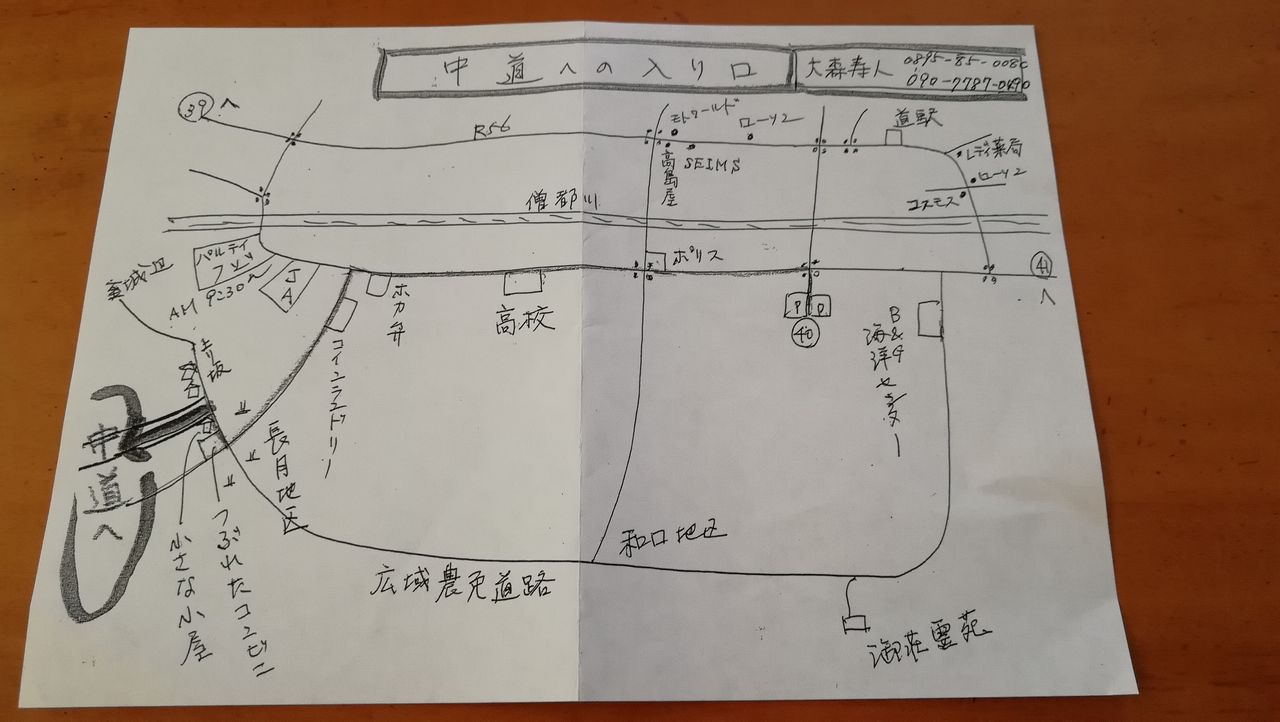 中道への入り口
大森寿人 0895-85-008
090-7787-0490
39へ
R56
モトワールド
ローソン
道駅
高島屋
SEIMS
レディ薬局
ローソン
コスモス
僧都川
パルティ
フジ
AM 9:30~
JA
ホカ弁
コインランドリー
高校
ポリス
P
P
40
41へ
B&G
海洋センター
より坂
中道へ
長月地区
つぶれたコンビニ
小さな小屋
和口地区
広域農免道路
御荘霊苑